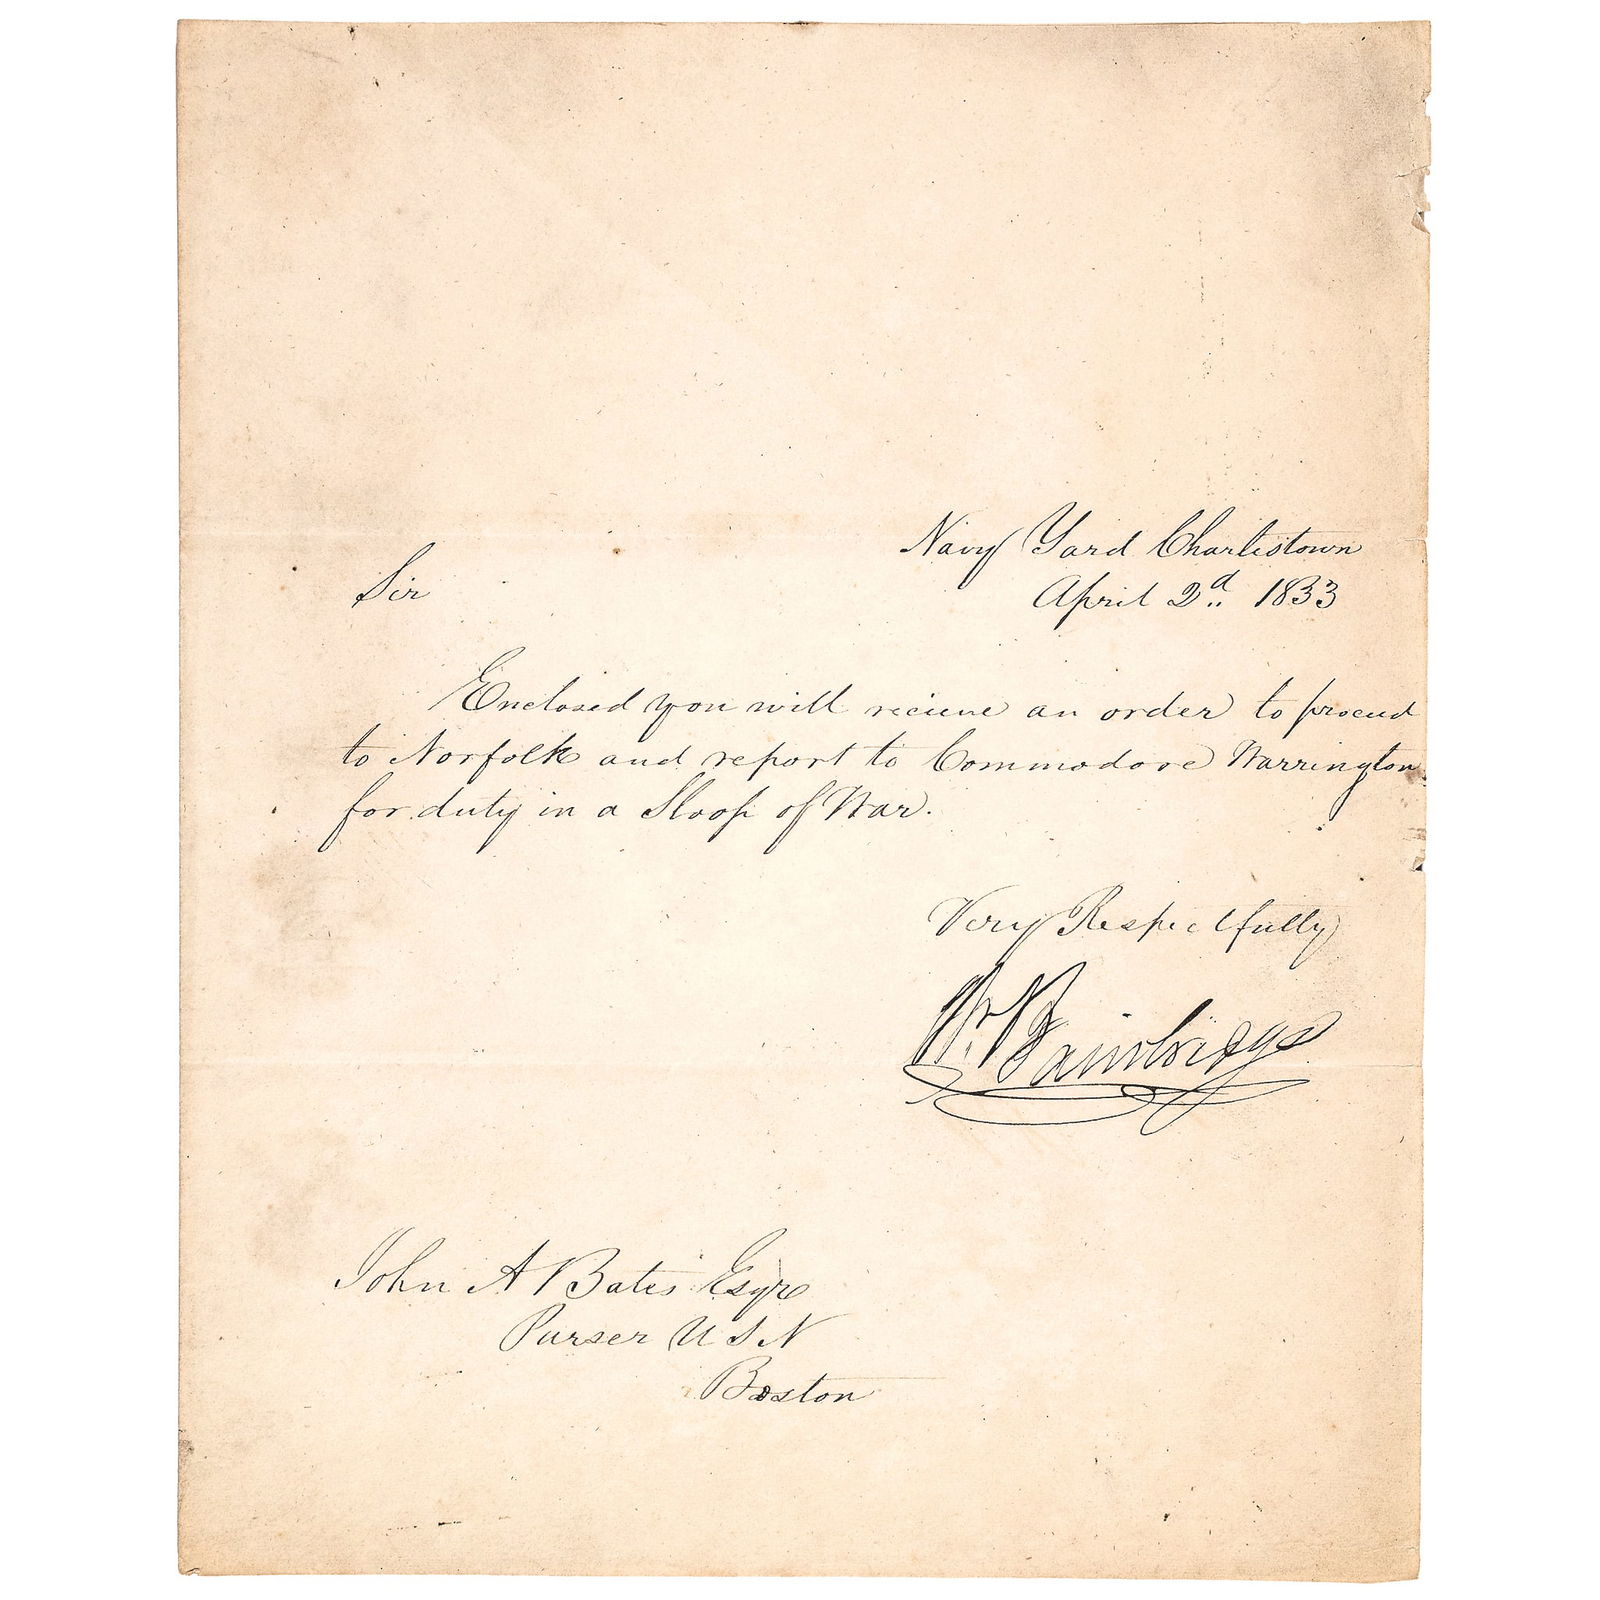 Navy Yard Charlestown
April 2d. 1833
Sir
Enclosed you will recieve an order to proceed
to Norfolk and report to Commodore Warrington
for duty in a Sloop of War.
Very Respectfully
Wm. Bainbridge
John A Bates Esqre
Purser U S N
Boston